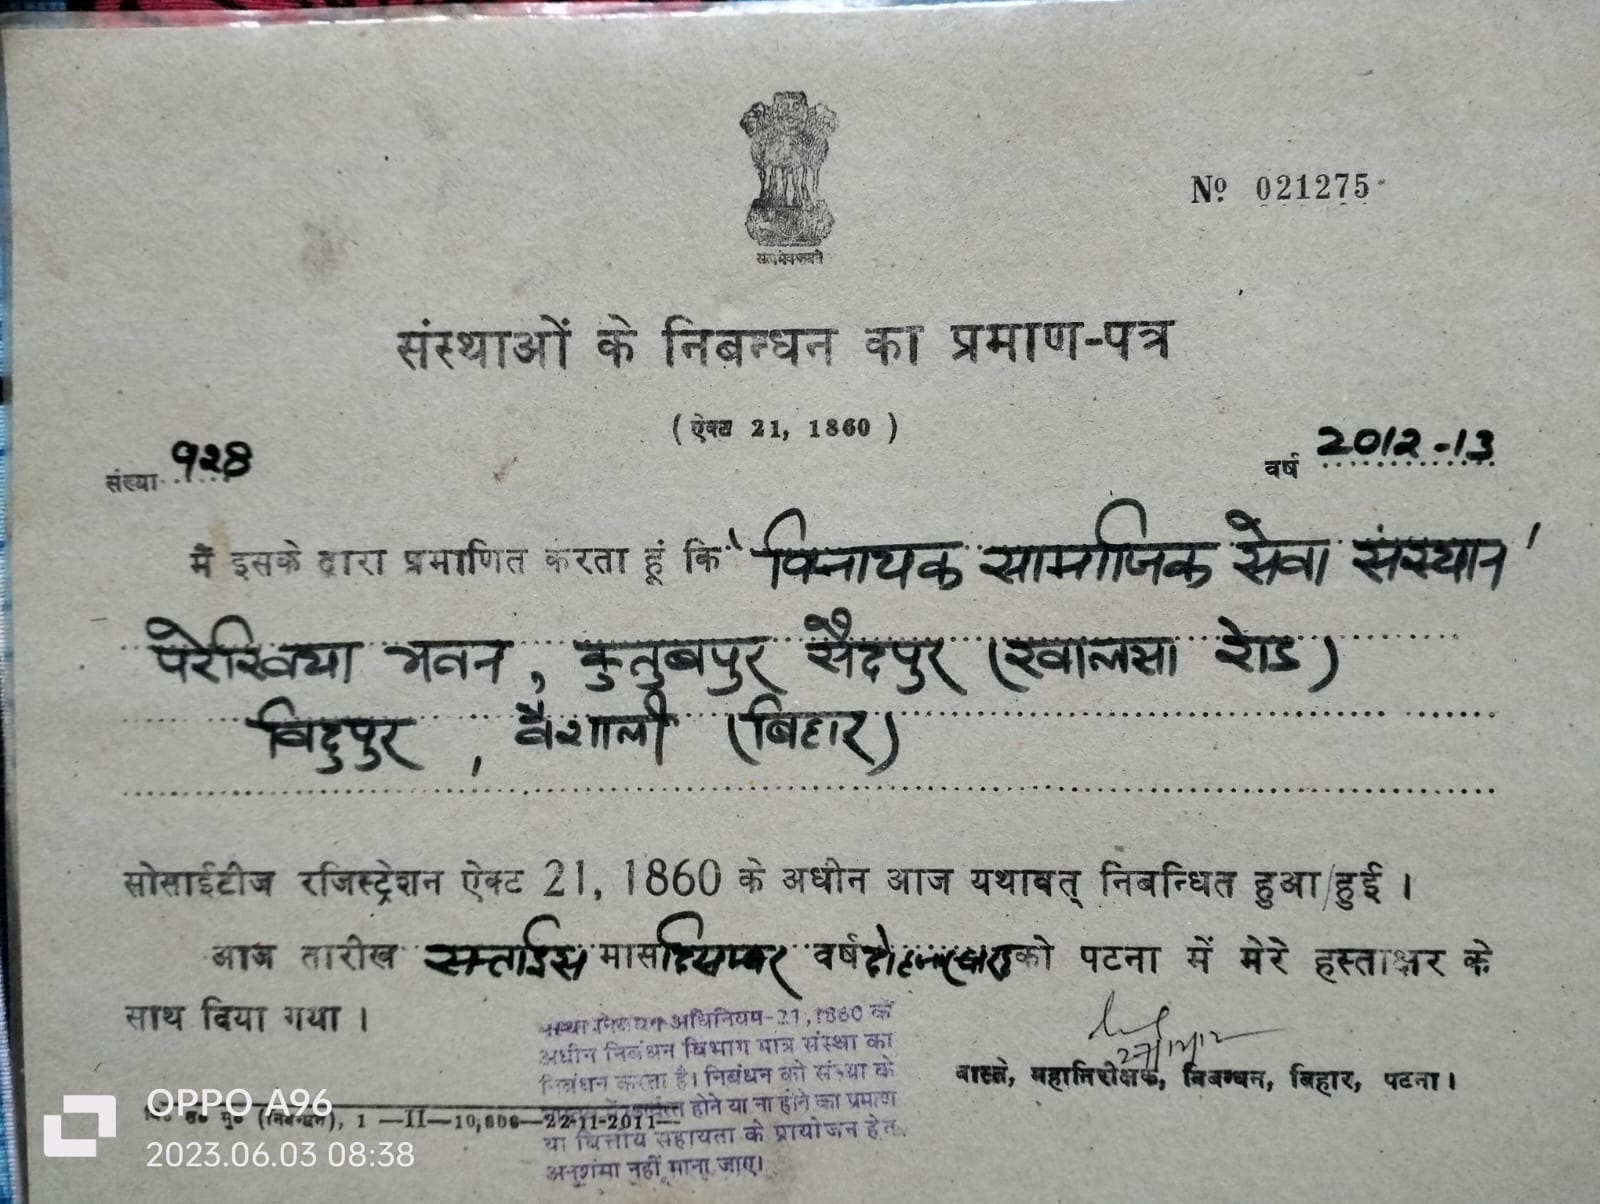 सत्यमेव जयते
Nº 021275
संस्थाओं के निबन्धन का प्रमाण-पत्र
( ऐक्ट 21, 1860 )
संख्या ९२8
वर्ष 2012-13
मैं इसके द्वारा प्रमाणित करता हूं कि 'विनायक सामाजिक सेवा संस्थान'
भवन, कुतुबपुर सैदपुर (खालसा रोड)
बिदुपुर, वैशाली (बिहार)
सोसाईटीज रजिस्ट्रेशन ऐक्ट 21, 1860 के अधीन आज यथावत् निबन्धित हुआ/हुई ।
आज तारीख सत्ताईस मास दिसम्बर वर्ष दो हजार बारह को पटना में मेरे हस्ताक्षर के
साथ दिया गया ।
27/12/12
वास्ते, महानिरीक्षक, निबन्धन, बिहार, पटना ।
संस्था निबंधन अधिनियम-21,1860 के
अधीन निबंधन विभाग मात्र संस्था का
निबंधन करता है। निबंधन को संस्था के
होने या ना होने का प्रमाण
या वित्तीय सहायता के प्रायोजन हेतु
अनुशंसा नहीं माना जाए।
बि० स० मु० (निबन्धन), 1 —II—10,000—22-11-2011—
OPPO A96
2023.06.03 08:38